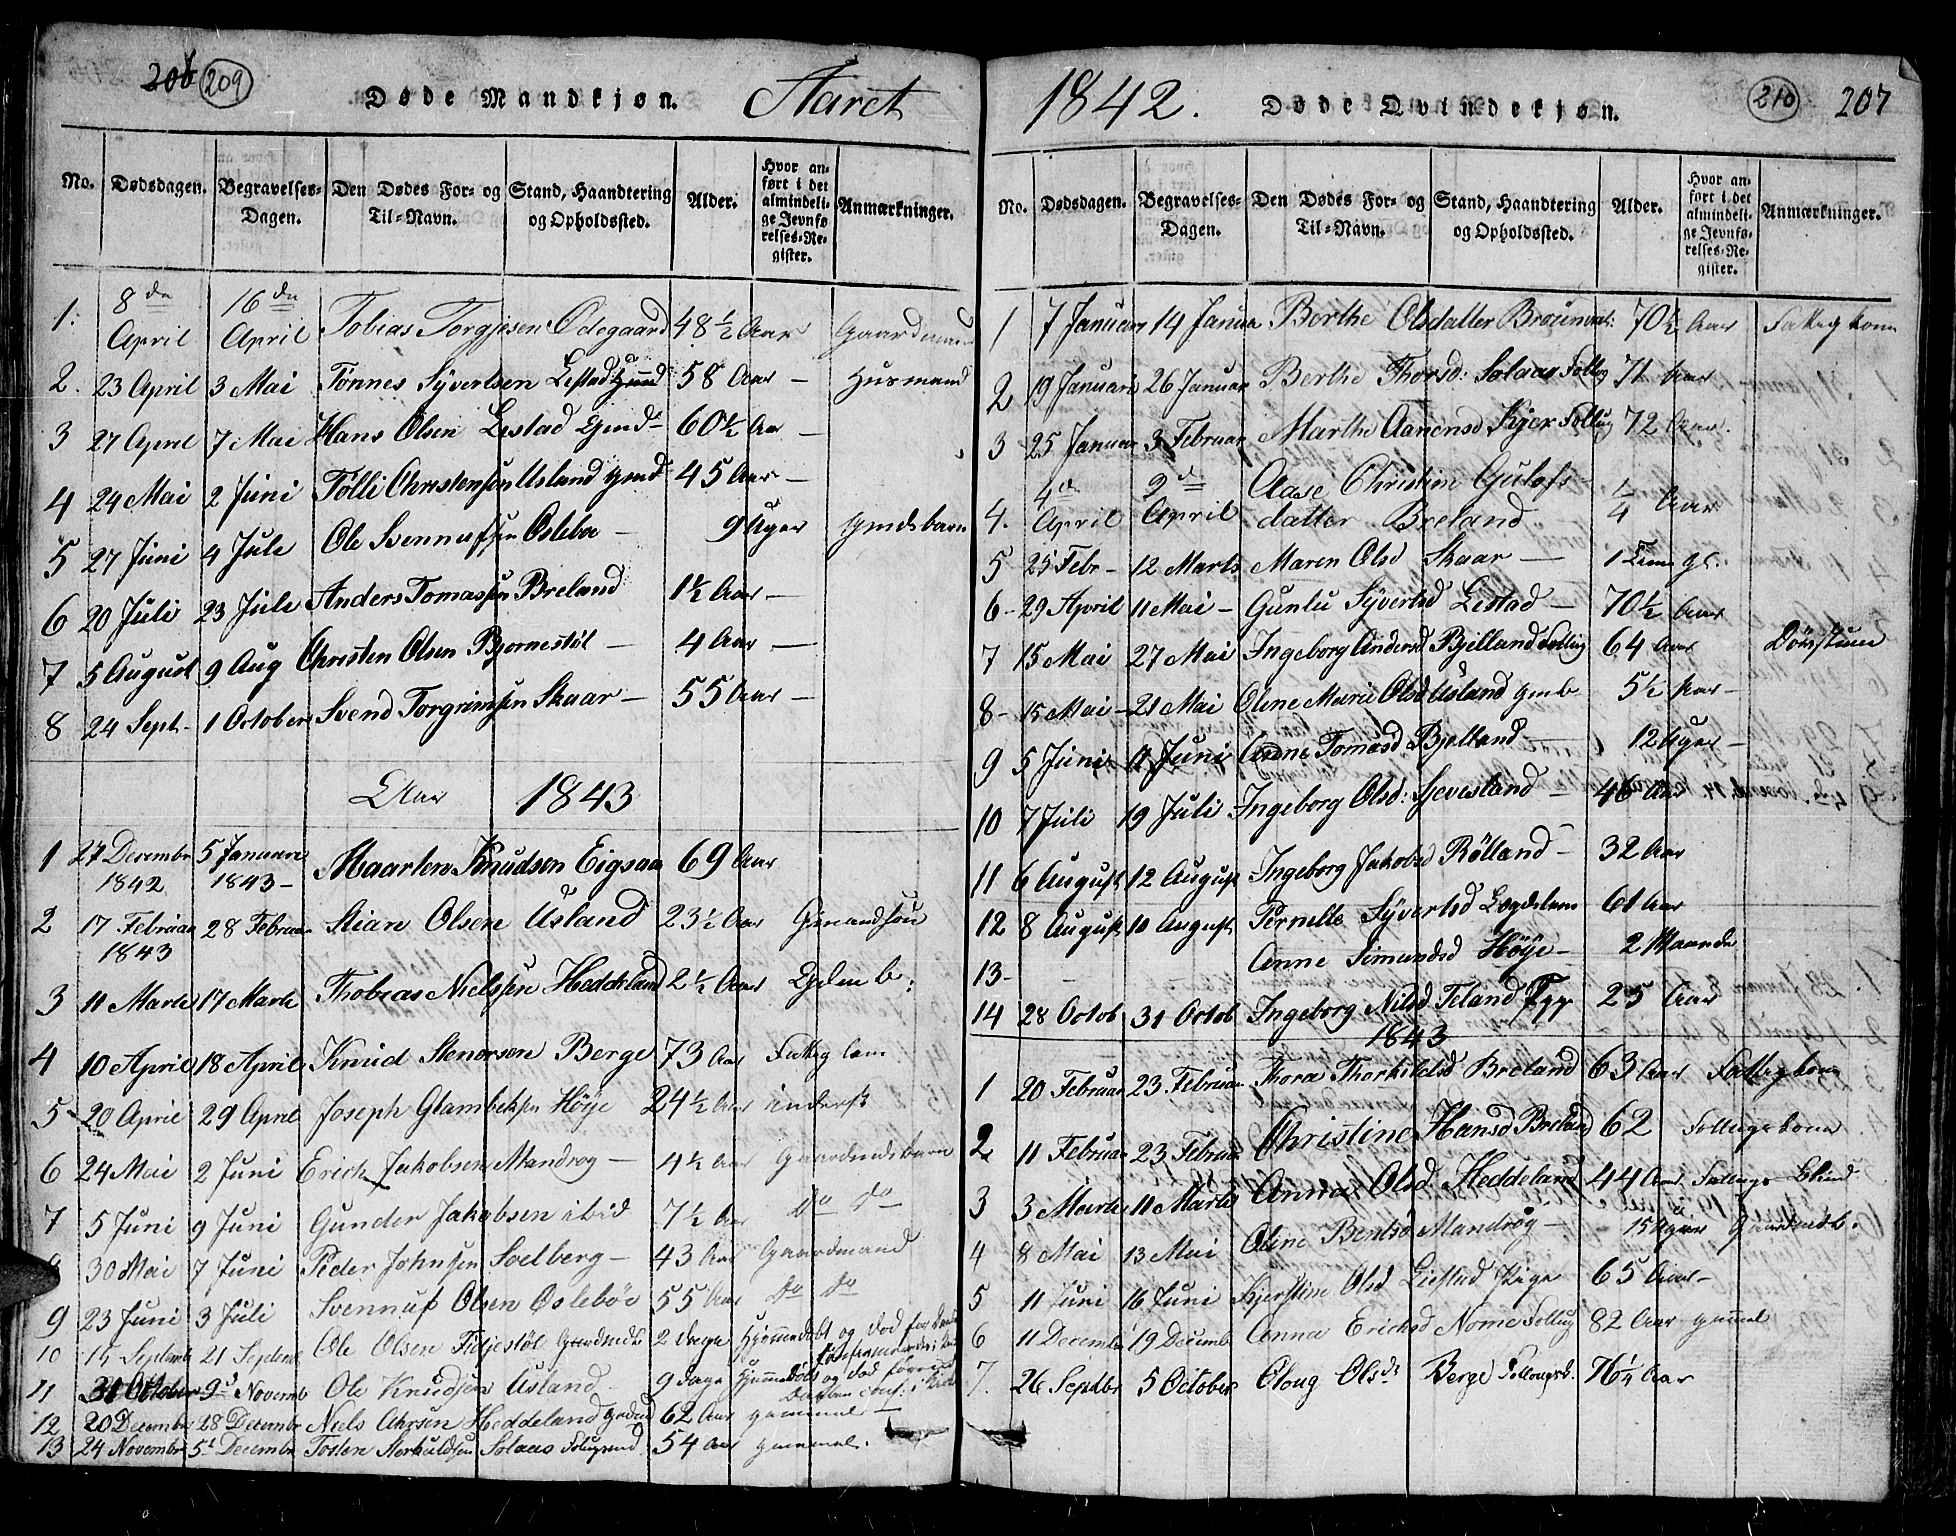 206 209
Døde Mandkjøn. Aaret
No. Dødsdagen. Begravelses-Dagen. Den Dødes For- og Til-Navn. Stand, Haandtering og Opholdssted. Alder. Hvor anført i det almindelige Jevnførelses-Register. Anmærkninger.
1. 8de April 16de April Tobias Torgjesen Ødegaard 48½ Aar Gaardmand
2. 23 April 3 Mai Tønnes Syvertsen Lestad 58 Aar — Husmand
3 27 April 7 Mai Hans Olsen Lestad 60½ Aar —
4 24 Mai 2 Juni Tølli Christensen Usland 45 Aar —
5 27 Juni 4 Juli Ole Svennufsen Oslebø — 9 Uger
6 20 Juli 23 Juli Anders Tomassen Breland 1½ Aar —
7 5 August 9 Aug Christen Olsen Bjornestøl — 4 Aar —
8 24 Sept. 1 October Svend Torgrimsen Skaar — 55 Aar —
Aar 1843
1 27 Decembr 1842 5 Januari 1843 — Maarten Knudsen Eigsaa 69 Aar
2 17 Februar 1843 28 Februar Stian Olsen Usland 23½ Aar
3 11 Marts 17 Marts Thobias Nielsen Heddeland 2½ Aar
4 10 April 18 April Knud Stenersen Berge 73 Aar
5 20 April 29 April Joseph Glambeksen Høye 24½ Aar inderst
6 24 Mai 2 Juni Erich Jakobsen Mandrog — 4½ Aar Gaardmdsbarn
7 5 Juni 9 Juni Gunder Jakobsen ibid 7½ Aar Do Do
30 Mai 7 Juni Peder Johnsen Solberg — 43 Aar Gaardmand
9 23 Juni 3 Juli Svennuf Olsen Oslebøe 55 Aar Do Do
10 14 Septemb 21 Septemb Ole Olsen Fidjestøl 2 Dage Hjemmedøbt og død før
11 31 October 9d Novemb Ole Knudsen Usland 9 Dage Hjemmedøbt og død
12 20 Decembr 28 Decembr Niels Heddeland 62 Aar gammel —
13 24 Novembr 5t Decembr Tosten Solaas 54 Aar gammel.
1842. Døde Qvindekjøn. 210 207
No. Dødsdagen. Begravelses-Dagen. Den Dødes For- og Til-Navn. Stand, Haandtering og Opholdssted. Alder. Hvor anført i det almindelige Jevnførelses-Register. Anmærkninger.
1 7 Januar 14 Januar Berthe Olsdatter 70½ Aar Fattigkone
2 19 Januar 26 Januar Berthe Thorsd: Solaas 71 Aar
3 25 Januar 3 Februar Marthe Aanensd Kjer 72 Aar.
4. 4d April 9de April Aase Christin Gulofs-
datter Breland ¼ Aar
5 25 Febr — 12 Marts Maren Olsd Skaar — 1 Time gl.
6 - 29 April 11 Mai — Gunlu Syvertsd Lestad — 70½ Aar
7 15 Mai 27 Mai Ingeborg Andersd Bjelland 64 Aar
8 - 15 Mai — 21 Mai Olene Marie Olsd Usland 5½ Aar —
9 5 Juni 11 Juni Anne Tomasd Bjelland — 12 Uger —
10 7 Juli 19 Juli Ingeborg Olsd: — 46 Aar
11 6 August 12 August Ingeborg Jakobsd Røiland — 32 Aar
12 8 August 10 August Pernille Syvertsd 61 Aar
13 - Anne Simundsd Høye — 2 Maander
14 28 Octob 31 Octob Ingeborg Nilsd 25 Aar
1843
1 20 Februar 23 Februar Thora Thorkildsd Breland 63 Aar Fattigkone
2 11 Februar 23 Februar Christine Hansd Breland 62
3 3 Marts 11 Marts Anna Olsd Heddeland 44 Aar
4 8 Mai 13 Mai Oline Bentsd Mandrog — 15 Uger
5 11 Juni 16 Juni Kjerstine Olsd Liestad Pige 65 Aar —
6 11 Decembr 19 Decembr Anna Ericksd Nome 82 Aar gammel
7. 26 Septbr 5 October Oloug Olsdr Berge 76¼ Aar